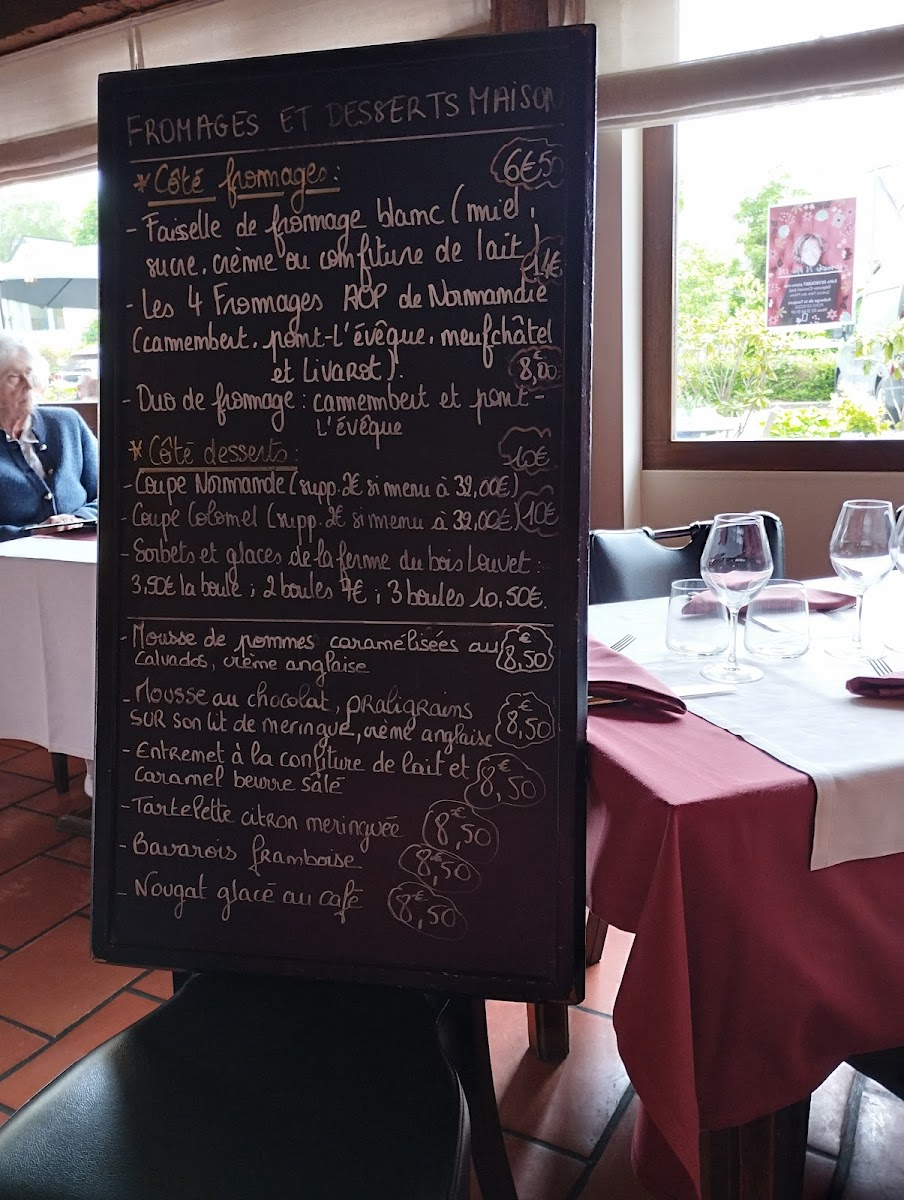 FROMAGES ET DESSERTS MAISON
* Côté fromages: 6€50
- Faisselle de fromage blanc (miel,
sucre, crème ou confiture de lait)
14€
- Les 4 Fromages AOP de Normandie
(camembert, pont-l'évêque, meufchâtel
et Livarot).
8,00€
- Duo de fromage : camembert et pont-
l'évêque
* Côté desserts: 10€
- Coupe Normande (supp. 2€ si menu à 32,00€)
- Coupe Colomel (supp. 2€ si menu à 32,00€) 10€
- Sorbets et glaces de la ferme du bois Louvet:
3,50€ la boule ; 2 boules 7€ ; 3 boules 10,50€.
- Mousse de pommes caramélisées au
Calvados, crème anglaise 8,50€
- Mousse au chocolat, praligrains
sur son lit de meringue, crème anglaise 8,50€
- Entremet à la confiture de lait et
caramel beurre sâlé 8,50€
- Tartelette citron meringuée 8,50€
- Bavarois framboise 8,50€
- Nougat glacé au café 8,50€